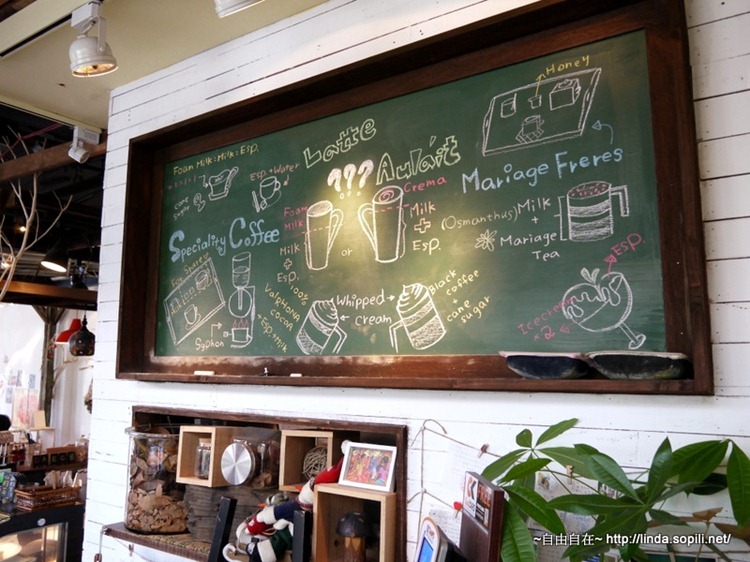 Foam Milk:Milk:Esp.
cane
sugar
Esp+Water
Latte
???
Aulait
Honey
Mariage Freres
Speciality Coffee
For Share
Syphon
Foam
Milk
Milk
+
Esp.
or
Crema
Milk
+
Esp.
(Osmanthus) Milk
+
Mariage
Tea
100%
Valphona
cocoa
+ Esp+Milk
Whipped
cream
Black
coffee
+
cane
sugar
Esp.
Icecream
×2
~自由自在~ http://linda.sopili.net/